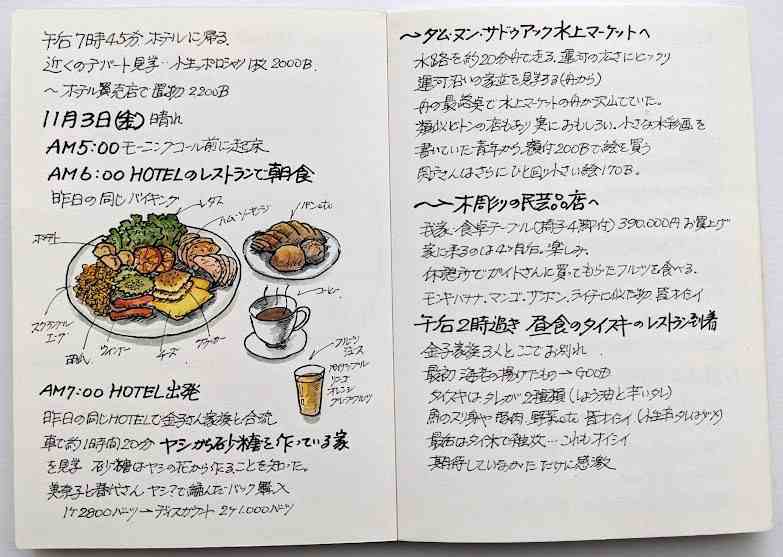 午后7時45分 ホテルに帰る.
近くのデパート見学… 小生ポロシャツ 1枚 2000B.
〜ホテル買売店で置物 2200B
11月3日(金) 晴れ
AM5:00 モーニングコール前に起床
AM6:00 HOTELのレストランで朝食
昨日の同じバイキング
レタス
ハム・ソーセージ
パンetc
ポテト
スクランブルエーグ
ウインナー
チーズ
クラッカー
コーヒー
フルーツジュース
パイナップル
リンゴ
オレンジ
グレープフルーツ
AM7:00 HOTEL出発
昨日の同じHOTELで金子さん家族と合流
車で約1時間20分 ヤシから砂糖を作っている家
を見学 砂糖はヤシの花から作ることを知った。
ヤシ?で編んだバック購入
1ケ2800バーツ→ディスカウント 2ケ1,000バーツ
〜タム・ヌン・サドゥアック水上マーケットへ
水路を約20分舟で走る. 運河の広さにビックリ
運河沿いの家並を見学する(舟から)
舟の最終点で水上マーケットの舟が沢山でていた。
類似ヒトンの店もあり 実におもしろい. 小さな水彩画を
書いていた青年から. 額付200Bで絵を買う
奥さんはさらにひと回り小さい絵170B.
〜→木彫りの民芸品店へ
我家・食卓テーブル(椅子4脚付) 390.000円お買上げ
家に来るのは4ヶ月后. 楽しみ.
休憩所でガイドさんに買ってもらたフルーツを食べる.
モンキバナナ. マンゴ. ザボン. ライチに似た物 皆オイシイ
午后2時過ぎ 昼食のタイスキのレストラン到着
金子家族3人とここでお別れ
最初 海老の揚げたもの→GOOD
タイスキはタレが2種類(しょう油と辛いタレ)
魚のスリ身や豚肉、野菜etc 皆オイシイ
最后はタイ米で雑炊… これもオイシイ
期待していなかただけに感激